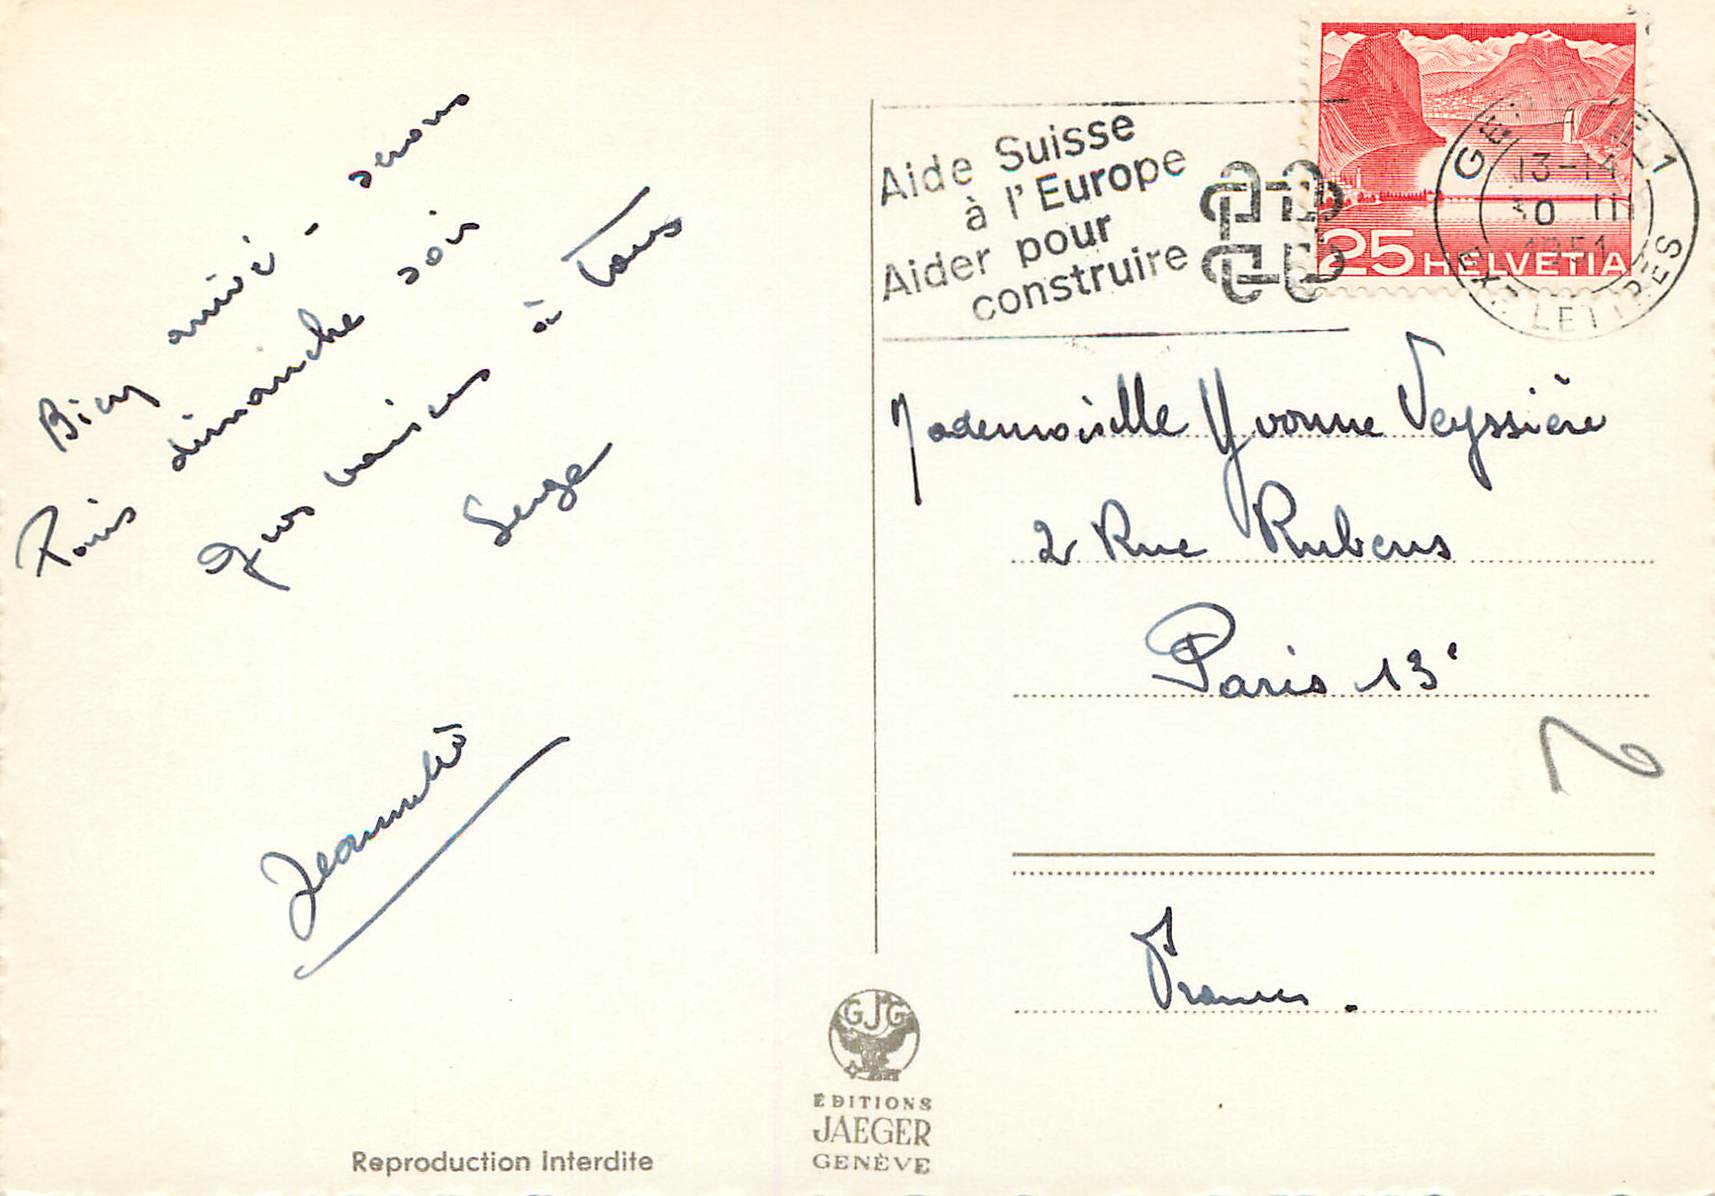 Bien arrivé - serons
Paris dimanche soir
gros baisers à tous
Serge
Jeannette
Reproduction Interdite
Aide Suisse
à l'Europe
Aider pour
construire
25 HELVETIA
13-14
III
1951
EXP. LETTRES
Mademoiselle Yvonne Veyssière
2 Rue Rubens
Paris 13e
France.
GJG
ÉDITIONS
JAEGER
GENÈVE